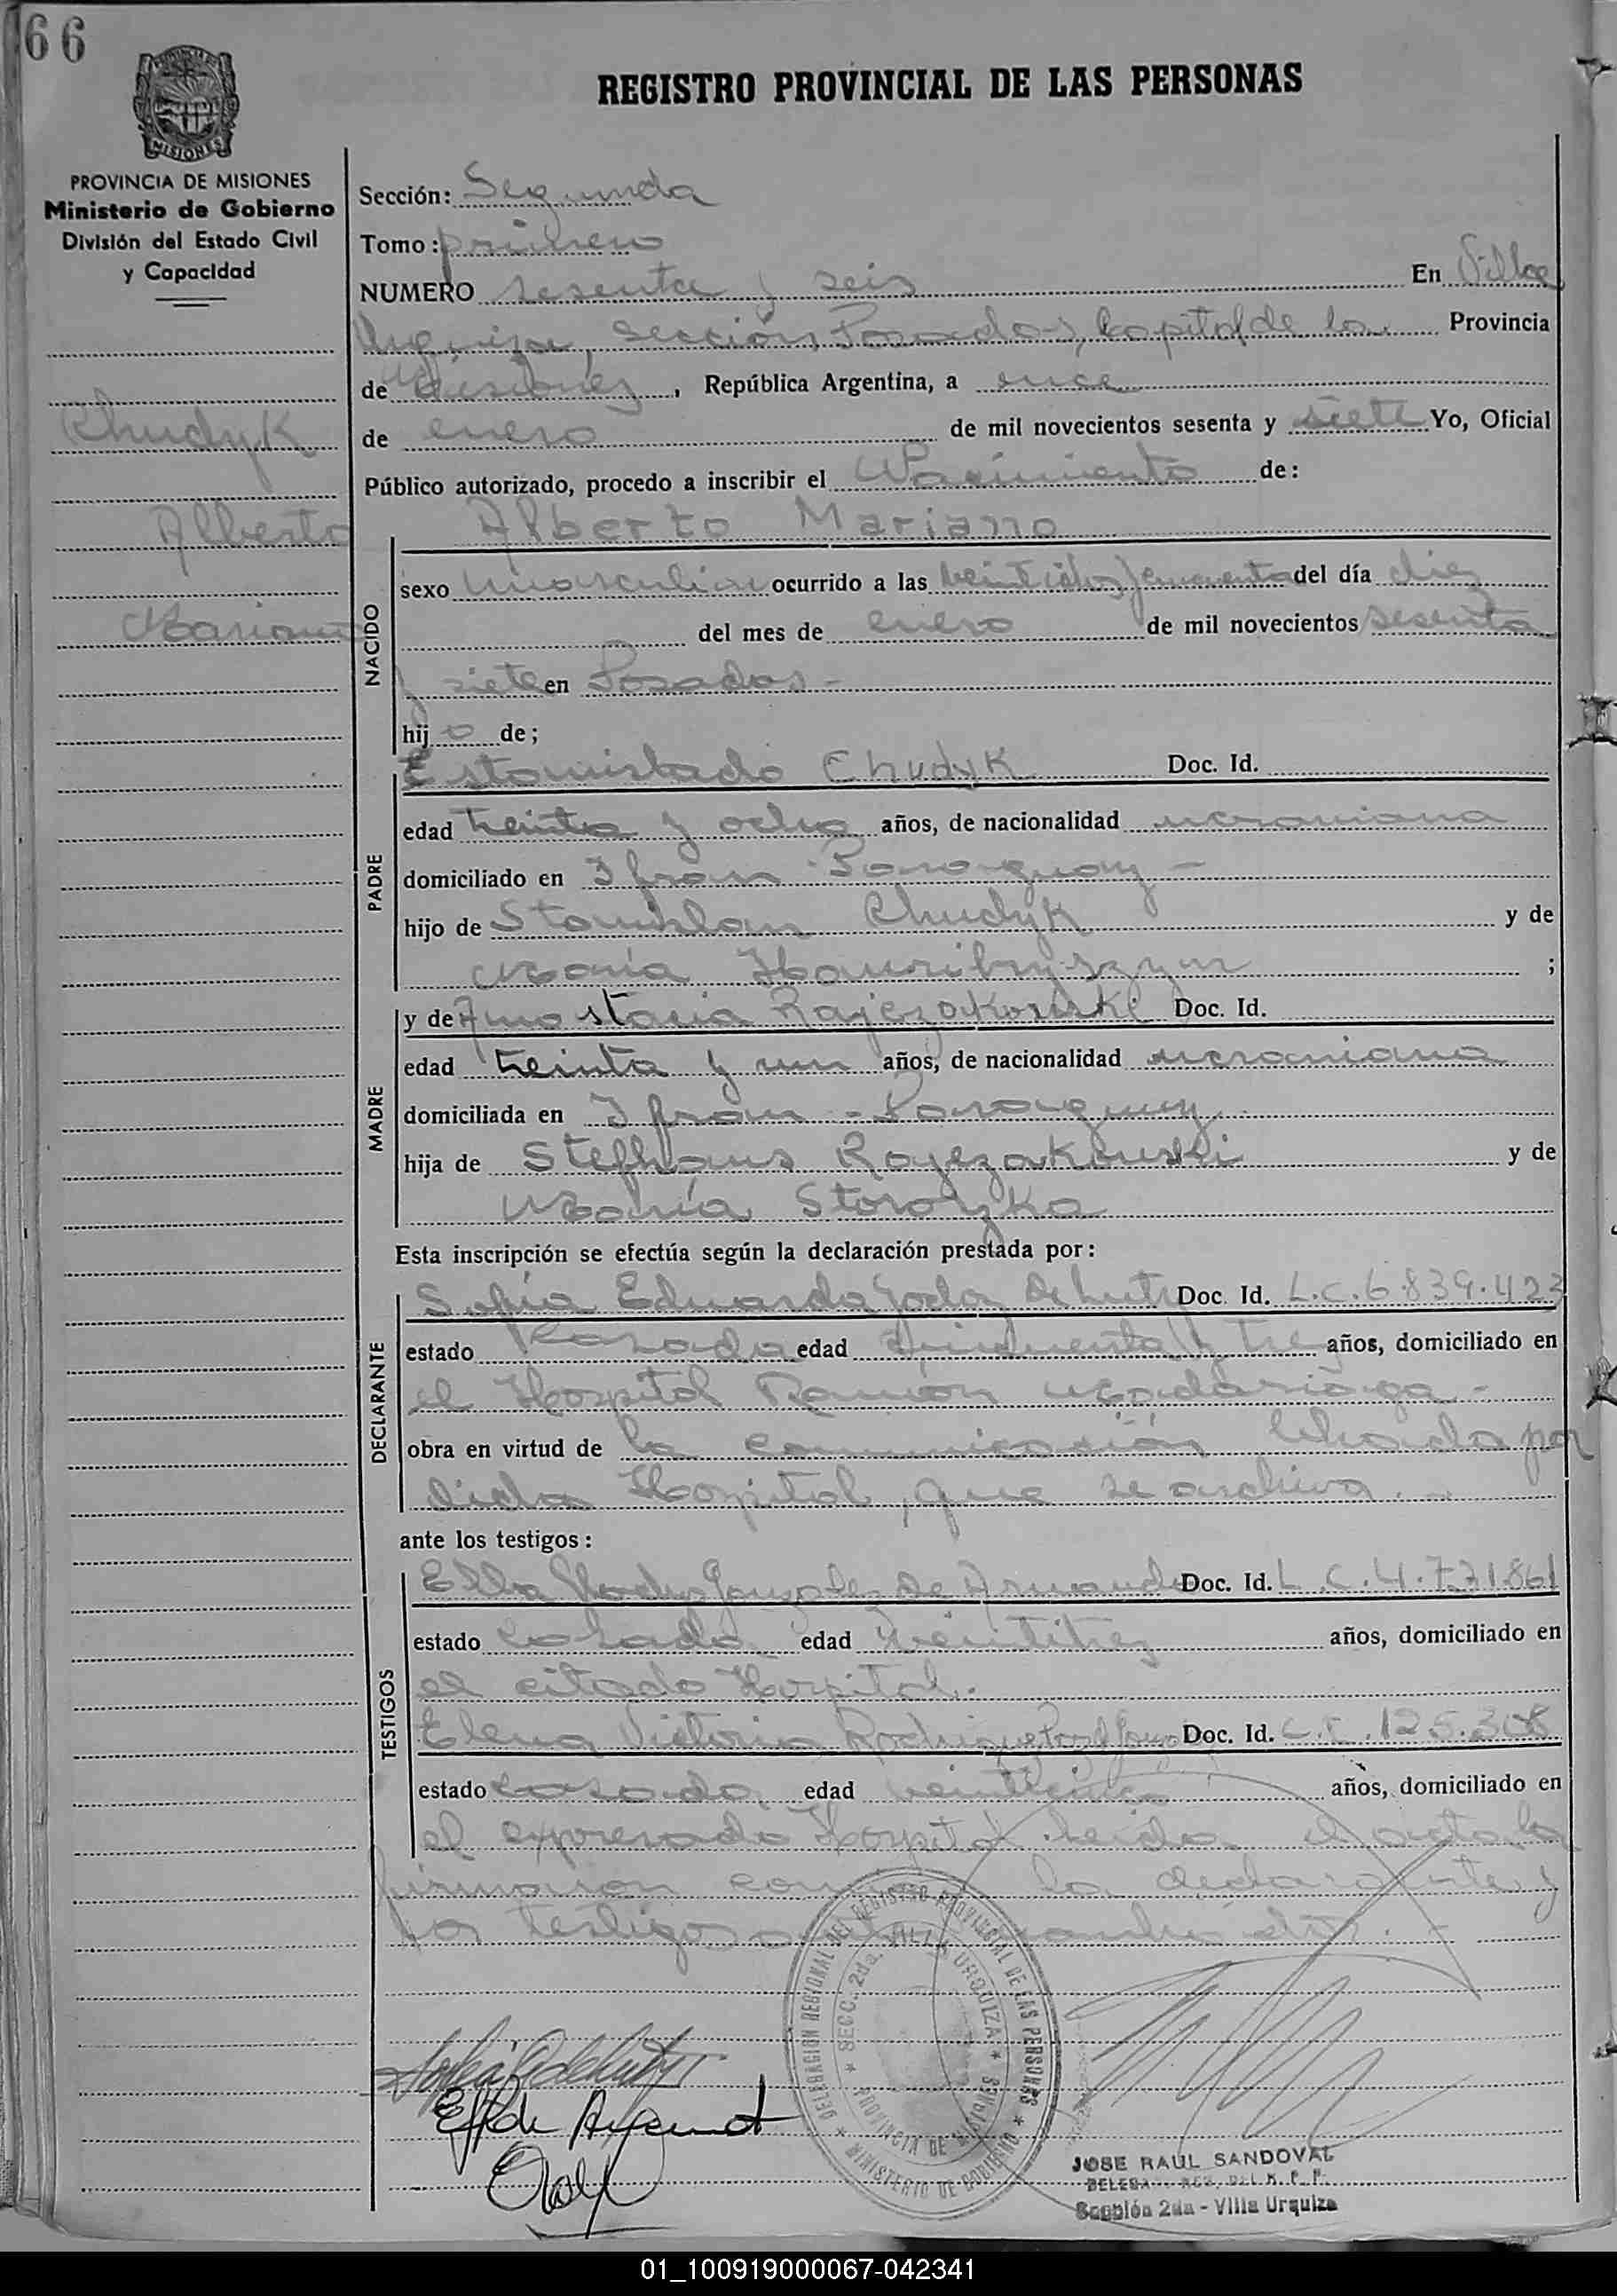 66
REGISTRO PROVINCIAL DE LAS PERSONAS
MISIONES
PROVINCIA DE MISIONES
Ministerio de Gobierno
División del Estado Civil
y Capacidad
Chudyk
Alberto
Mariano
Sección: Segunda
Tomo: primero
NUMERO sesenta y seis En Villa
Urquiza, Sección Posadas, Capital de la Provincia
de Misiones, República Argentina, a once
de enero de mil novecientos sesenta y siete Yo, Oficial
Público autorizado, procedo a inscribir el Nacimiento de:
Alberto Mariano
NACIDO
sexo masculino ocurrido a las cincuenta del día diez
del mes de enero de mil novecientos sesenta
y siete en Posadas -
hijo de;
PADRE
Estanislado Chudyk Doc. Id.
edad treinta y ocho años, de nacionalidad ucraniana
domiciliado en Ifran - Paraguay -
hijo de Stanislau Chudyk y de
María ;
MADRE
y de Anastacia Doc. Id.
edad treinta y un años, de nacionalidad ucraniana
domiciliada en Ifran - Paraguay
hija de Stephans y de
María Storozka
Esta inscripción se efectúa según la declaración prestada por:
DECLARANTE
Sofía Eduarda Doc. Id. L.C. 6.839.423
estado Casada edad cincuenta y tres años, domiciliado en
el Hospital Ramón Madariaga -
obra en virtud de la comunicación librada por
dicho Hospital, que se archiva. -
ante los testigos:
TESTIGOS
Doc. Id. L.C. 4.771861
estado Casada edad veintitrez años, domiciliado en
el citado Hospital.
Elena Victoria Doc. Id. C.I. 125.308
estado casada edad años, domiciliado en
el expresado Hospital. Leída el acta la
firmaron la declarante y
los testigos
DELEGACION REGIONAL DEL REGISTRO PROVINCIAL DE LAS PERSONAS * MINISTERIO DE GOBIERNO *
SECC. 2da. VILLA URQUIZA * PROVINCIA DE MISIONES *
JOSE RAUL SANDOVAL
Sección 2da - Villa Urquiza
01_100919000067-042341